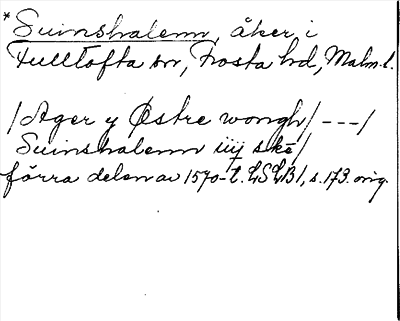 * Suinshalenn, åker i
Fulltofta sn, Frosta hd, Malm. l.
/Ager y Østre wongh/ ---/
Suinshalenn iiij skē/
förra delen av 1570-t. LSLB1, s. 173. orig.